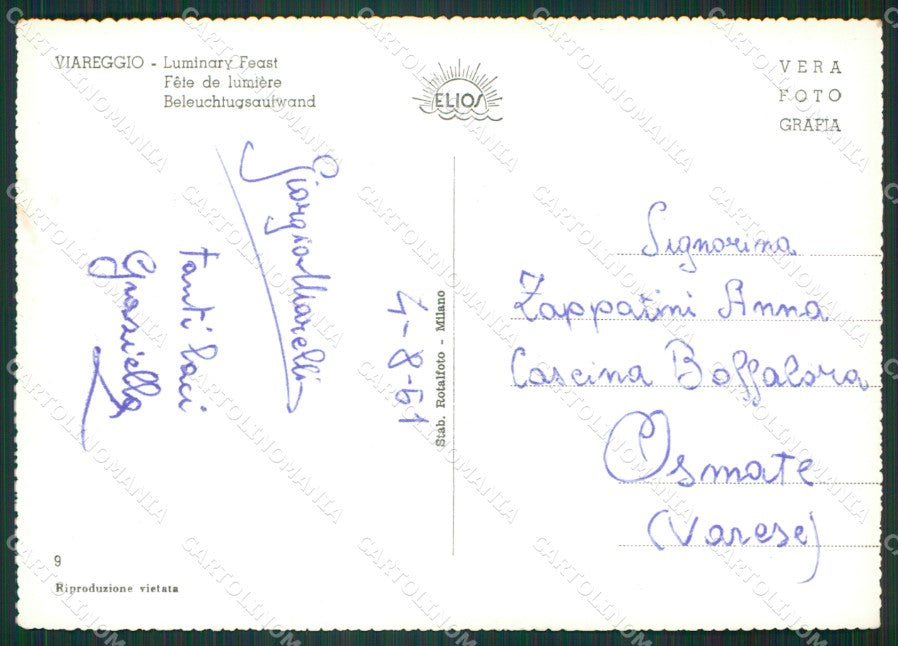 VIAREGGIO - Luminary Feast
Fête de lumière
Beleuchtugsaufwand
ELIOS
VERA
FOTO
GRAFIA
Giorgio Marelli
tanti baci
Graziella
4-8-61
Stab. Rotalfoto - Milano
Signorina
Zappatini Anna
Cascina Boffalora
Osmate
(Varese)
9
Riproduzione vietata
CARTOLINOMANIA